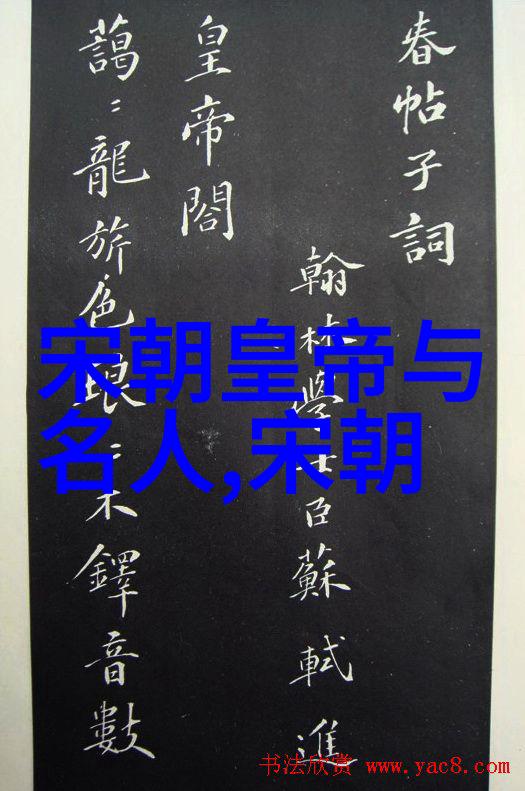 春帖子詞
翰林學士臣蘇軾進
皇帝閤
藹〻龍旂色琅〻木鐸音數
宋朝皇帝与
名人,宋朝
书法欣赏 www.yac8.com